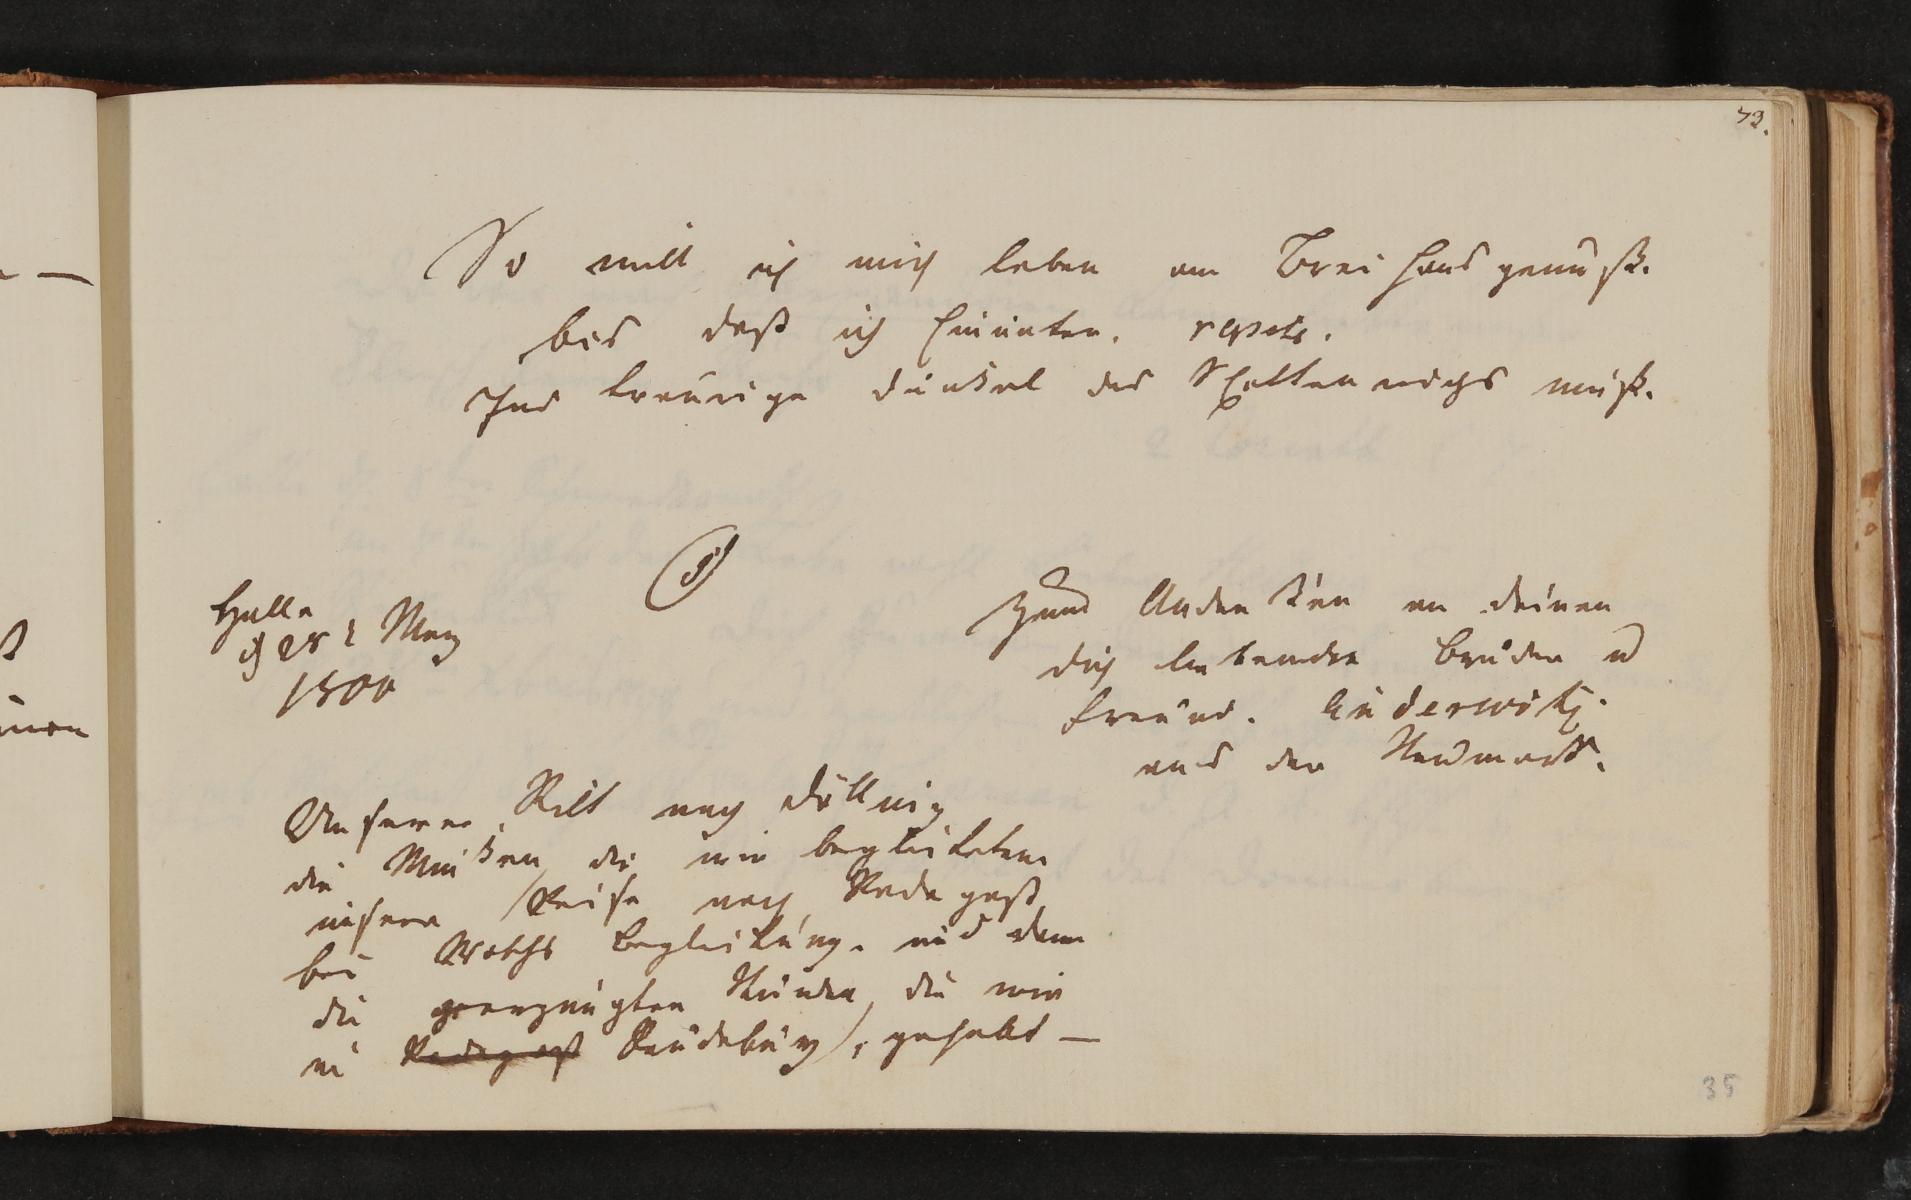 73.
So will ich mich leben am Breihans genuß.
bis daß ich hinunter. repet.
Ins traurige dunkel des Schattenreichs muß.
Halle
d 28 t May
1800
Zum Andenken an deinen
dich liebenden Bruder u
Freund. Kuderwitz.
aus der Neumark.
Unserer Ritt nach Döllniz
die Musken, die wir begleiteten
unsere Reise nach Radegast
bei Begleitung. und dem
die Stunden, die wir
in Radegast gehabt —
35